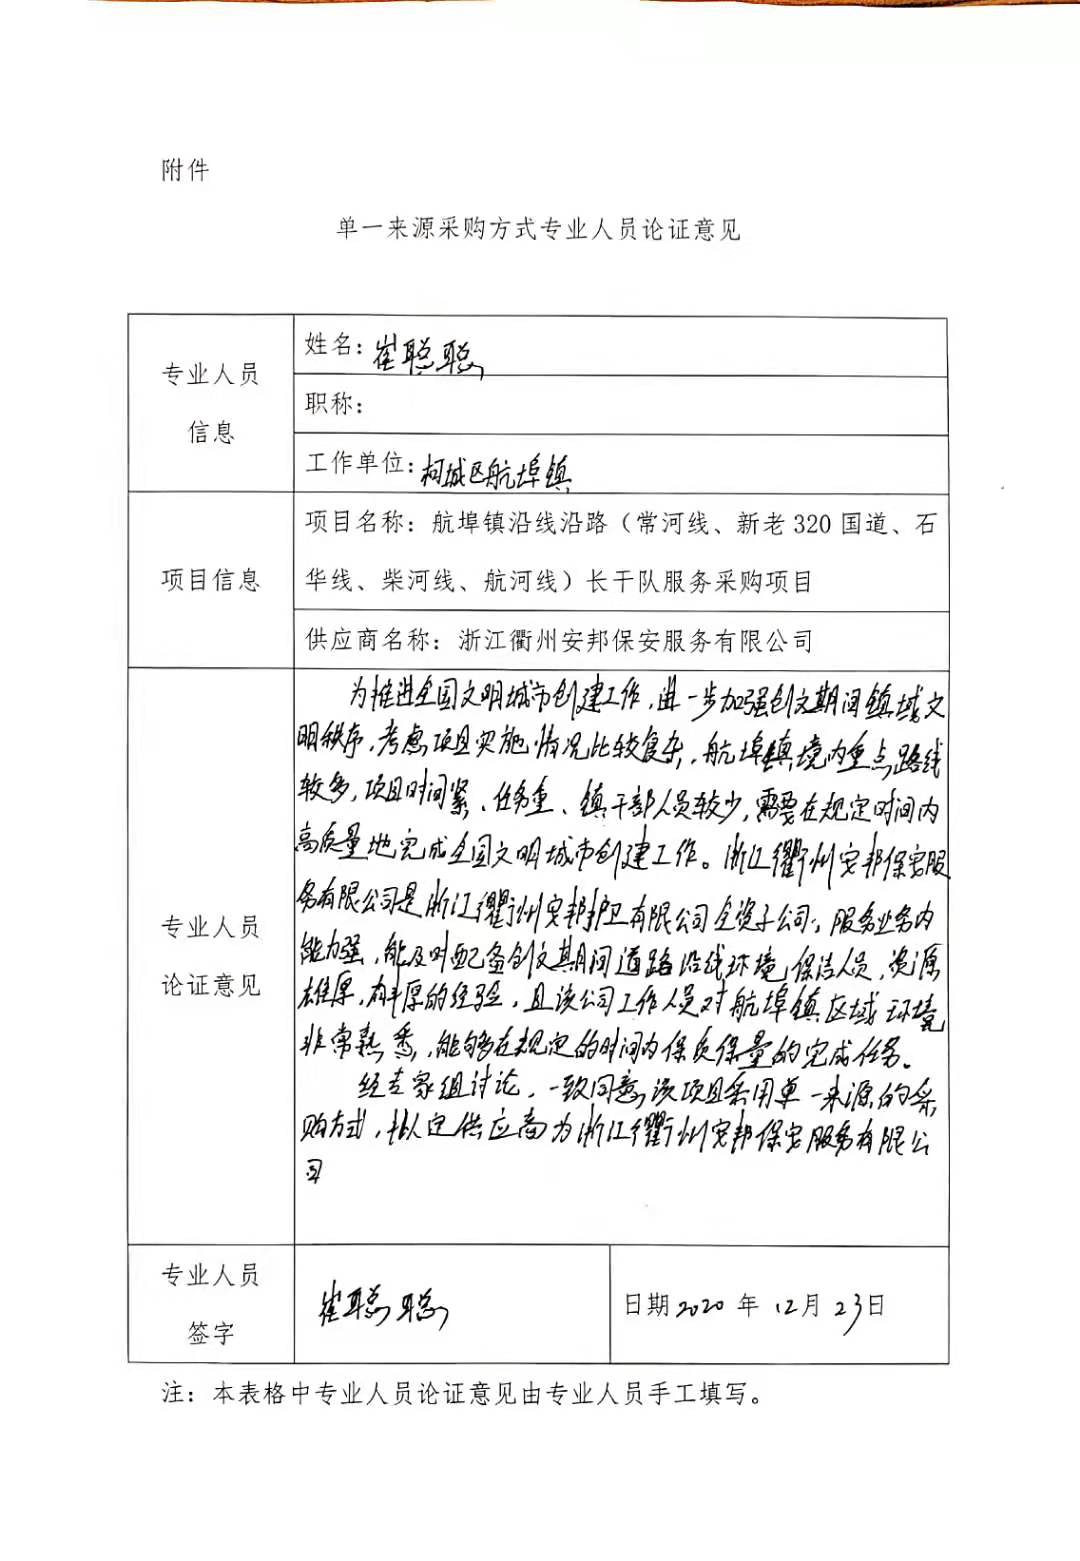 附件
单一来源采购方式专业人员论证意见
专业人员
信息
姓名：崔聪聪
职称：
工作单位：柯城区航埠镇
项目信息
项目名称：航埠镇沿线沿路（常河线、新老320国道、石
华线、柴河线、航河线）长干队服务采购项目
供应商名称：浙江衢州安邦保安服务有限公司
专业人员
论证意见
为推进全国文明城市创建工作，进一步加强创文期间镇域文
明秩序，考虑项目实施情况比较复杂，航埠镇境内重点路线
较多，项目时间紧、任务重、镇干部人员较少，需要在规定时间内
高质量地完成全国文明城市创建工作。浙江衢州安邦保安服
务有限公司是浙江衢州安邦护卫有限公司全资子公司，服务业务内
能力强，能及时配备创文期间道路沿线环境保洁人员，资源
雄厚，有丰厚的经验，且该公司工作人员对航埠镇区域环境
非常熟悉，能够在规定的时间内保质保量的完成任务。
经专家组讨论，一致同意该项目采用单一来源的采
购方式，拟定供应商为浙江衢州安邦保安服务有限公
司
专业人员
签字
崔聪聪
日期2020年12月23日
注：本表格中专业人员论证意见由专业人员手工填写。